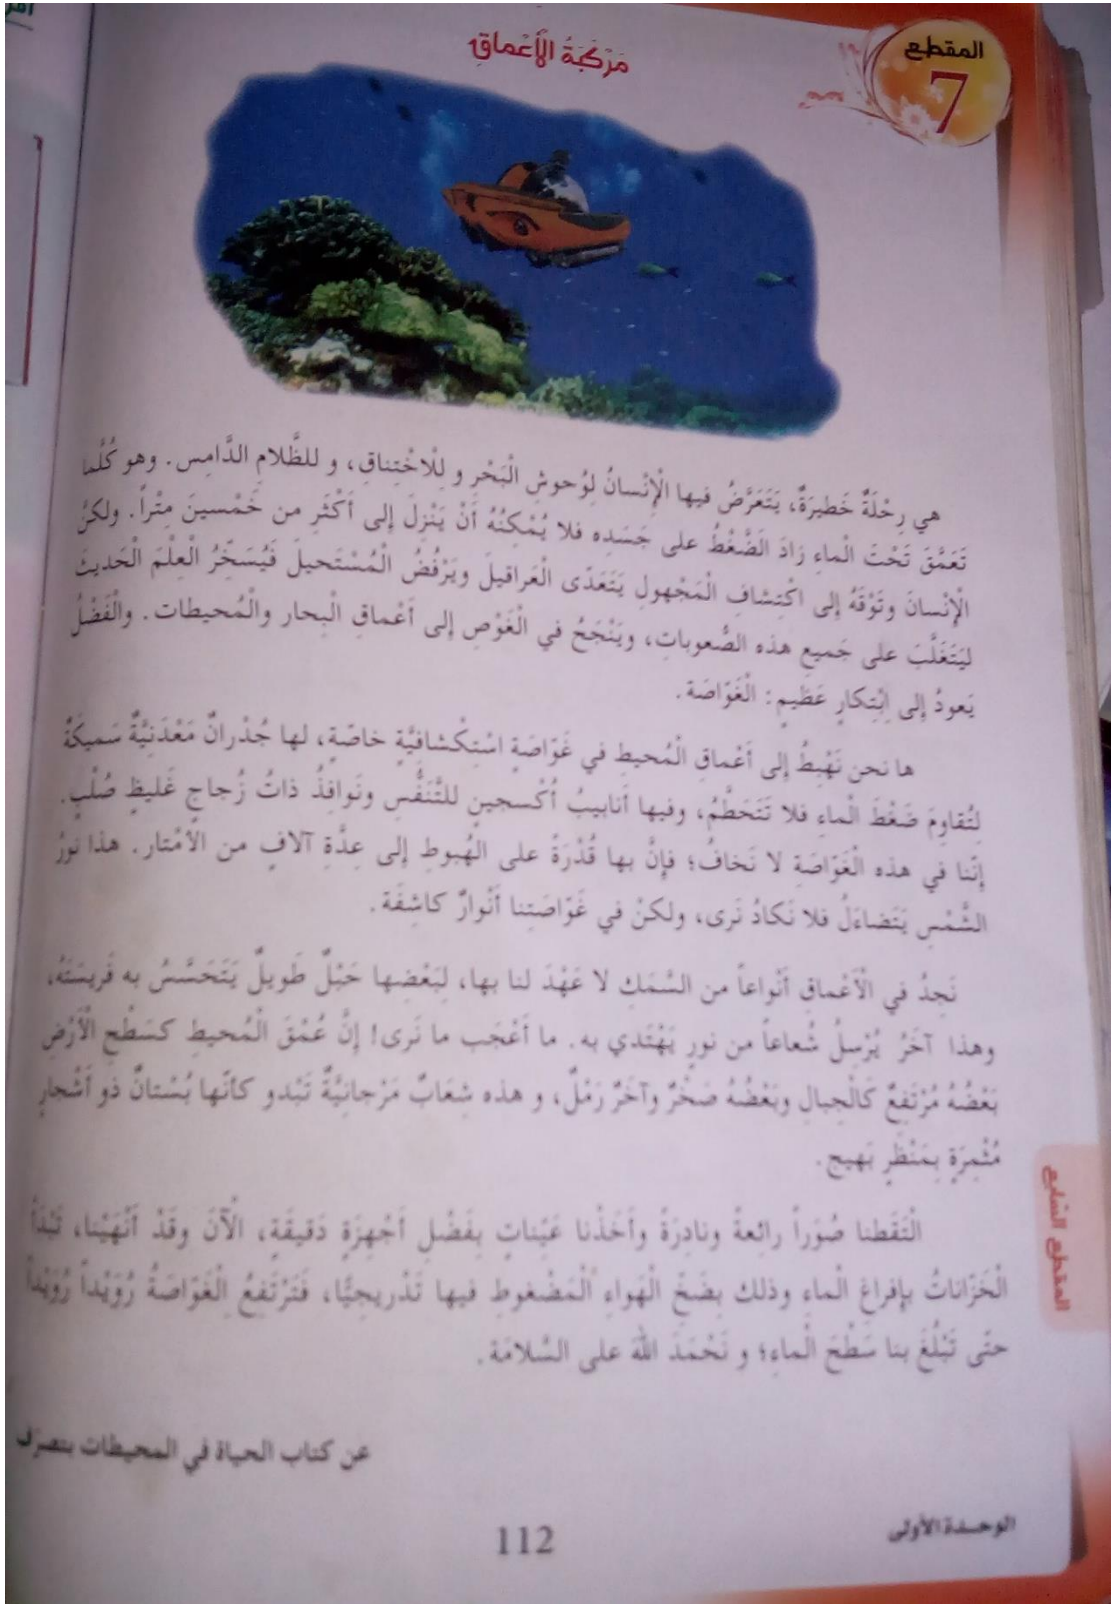 المقطع
7
مَرْكَبَةُ الْأَعْماقِ
هي رِحْلَةٌ خَطيرَةٌ، يَتَعَرَّضُ فيها الْإِنْسانُ لِوُحوشِ الْبَحْرِ و لِلْاخْتِناقِ، و للظَّلامِ الدَّامِسِ. وهو كُلَّما
تَعَمَّقَ تَحْتَ الْماءِ زادَ الضَّغْطُ على جَسَدِه فلا يُمْكِنُهُ أَنْ يَنْزِلَ إلى أَكْثَرِ من خَمْسينَ مِتْراً. ولكنْ
الْإِنْسانَ وتَوْقَهُ إلى اكْتِشافِ الْمَجْهولِ يَتَعَدّى الْعَراقيلَ ويَرْفُضُ الْمُسْتَحيلَ فَيُسَخِّرُ الْعِلْمَ الْحَديثَ
ليَتَغَلَّبَ على جَميعِ هذه الصُّعوباتِ، ويَنْجَحُ في الْغَوْصِ إلى أَعْماقِ الْبِحارِ والْمُحيطات. والْفَضْلُ
يَعودُ إلى اِبْتِكارٍ عَظيمٍ: الْغَوّاصَة.
ها نحن نَهْبِطُ إلى أَعْماقِ الْمُحيطِ في غَوّاصَةٍ اسْتِكْشافِيَّةٍ خاصّةٍ، لها جُدْرانٌ مَعْدَنِيَّةٌ سَميكَةٌ
لِتُقاوِمَ ضَغْطَ الْماءِ فلا تَتَحَطَّمُ، وفيها أَنابيبُ أُكْسجينٍ للتَّنَفُّسِ ونَوافِذُ ذاتُ زُجاجٍ غَليظٍ صُلْبٍ.
إنّنا في هذه الْغَوّاصَةِ لا نَخافُ؛ فإنَّ بها قُدْرَةً على الهُبوطِ إلى عِدَّةِ آلافٍ من الأمْتار. هذا نورُ
الشَّمْسِ يَتَضاءَلُ فلا نَكادُ نَرى، ولكنْ في غَوّاصَتِنا أَنْوارٌ كاشِفَة.
نَجِدُ في الْأَعْماقِ أَنْواعاً من السَّمَكِ لا عَهْدَ لنا بها، لِبَعْضِها حَبْلٌ طَويلٌ يَتَحَسَّسُ به فَريسَتَهُ،
وهذا آخَرُ يُرْسِلُ شُعاعاً من نورٍ يَهْتَدي به. ما أَعْجَب ما نَرى! إنَّ عُمْقَ الْمُحيطِ كسَطْحِ الْأَرْضِ
بَعْضُهُ مُرْتَفِعٌ كَالْجِبالِ وبَعْضُهُ صَخْرٌ وآخَرٌ رَمْلٌ، و هذه شِعَابٌ مَرْجانِيَّةٌ تَبْدو كأنّها بُسْتانٌ ذو أَشْجارٍ
مُثْمِرَةٍ بِمَنْظَرٍ بَهيج.
الْتَقَطنا صُوَراً رائِعةً ونادِرَةً وأَخَذْنا عَيِّناتٍ بِفَضْلِ أَجْهِزَةٍ دَقيقَةٍ، الْآنَ وقَدْ أَنْهَيْنا، تَبْدَأُ
الْخَزّاناتُ بإفراغِ الْماءِ وذلك بِضَخِّ الْهَواءِ الْمَضْغوطِ فيها تَدْريجيًّا، فَتَرْتَفِعُ الْغَوّاصَةُ رُوَيْداً رُوَيْداً
حتّى تَبْلُغَ بنا سَطْحَ الْماءِ؛ و نَحْمَدَ اللهَ على السَّلامَة.
عن كتاب الحياة في المحيطات بتصرّف
المقطع السّابع
الوحدة الأولى
112